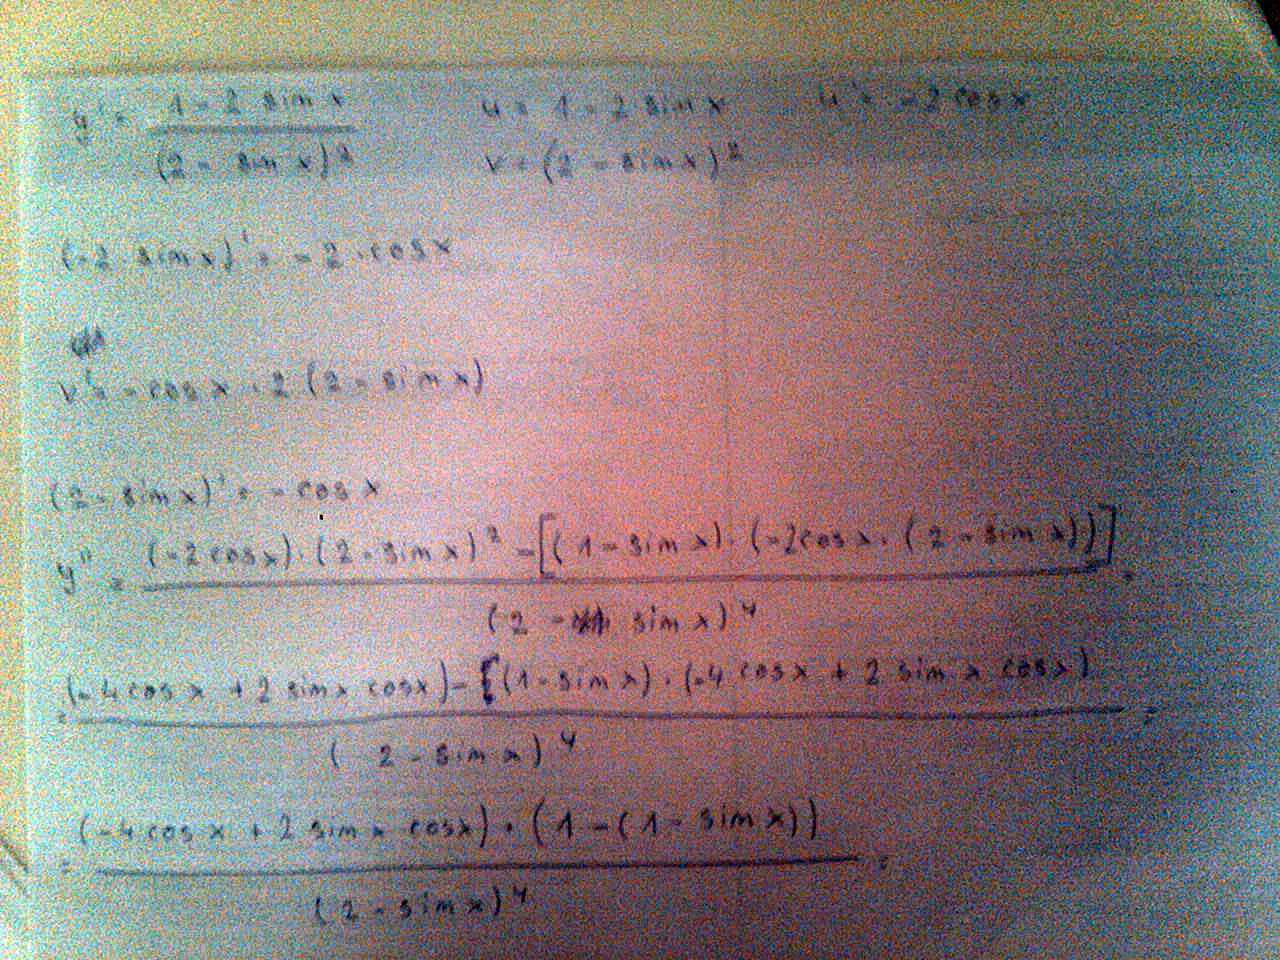 y' = (1 - 2 sin x) / (2 - sin x)² u = 1 - 2 sin x u' = -2 cos x
v = (2 - sin x)²
(-2 sin x)' = -2 · cos x
v' = -cos x · 2 (2 - sin x)
(2 - sin x)' = -cos x
y'' = (-2 cos x) · (2 - sin x)² - [(1 - sin x) · (-2 cos x · (2 - sin x))] / (2 - sin x)⁴ =
= (-4 cos x + 2 sin x cos x) - [(1 - sin x) · (-4 cos x + 2 sin x cos x) / (2 - sin x)⁴ =
= (-4 cos x + 2 sin x cos x) · (1 - (1 - sin x)) / (2 - sin x)⁴ =